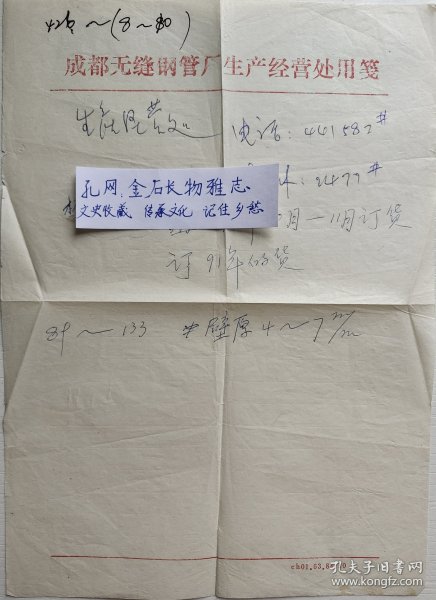 ～(8～80)
成都无缝钢管厂生产经营处用笺
生产经营处 电话：441582#
孔网：金石长物雅志
2477#
文史收藏 传承文化 记住乡愁
月—11月订货
订91年的货
89～133 壁厚4～7m/m
ch01.63.8
孔夫子旧书网
www.kongfz.com